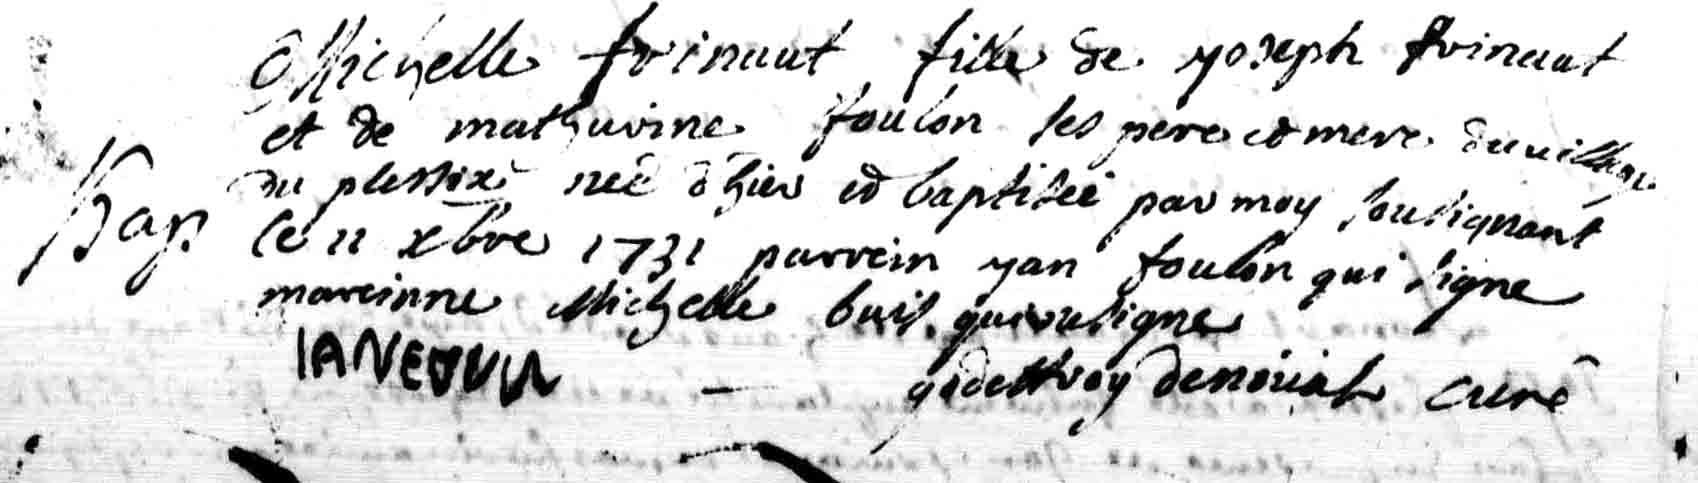 Michelle froinaut fille de yoseph froinaut
et de mathurine foulon ses pere et mere du village
du plessix née d'hier et baptisée par moy soussignant
Bap ce 11 xbre 1731 parrein yan foulon qui signe
mareinne Michelle buis qui ne signe
godeffroy curé